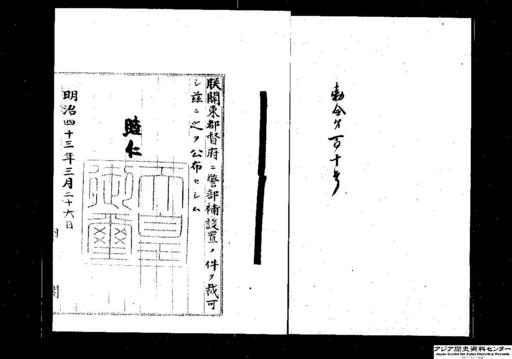 勅令第百十号
朕關東都督府ニ警部補設置ノ件ヲ裁可
シ茲ニ之ヲ公布セシム
睦仁
天皇御璽
明治四十三年三月二十六日
アジア歴史資料センター
Japan Center for Asian Historical Records